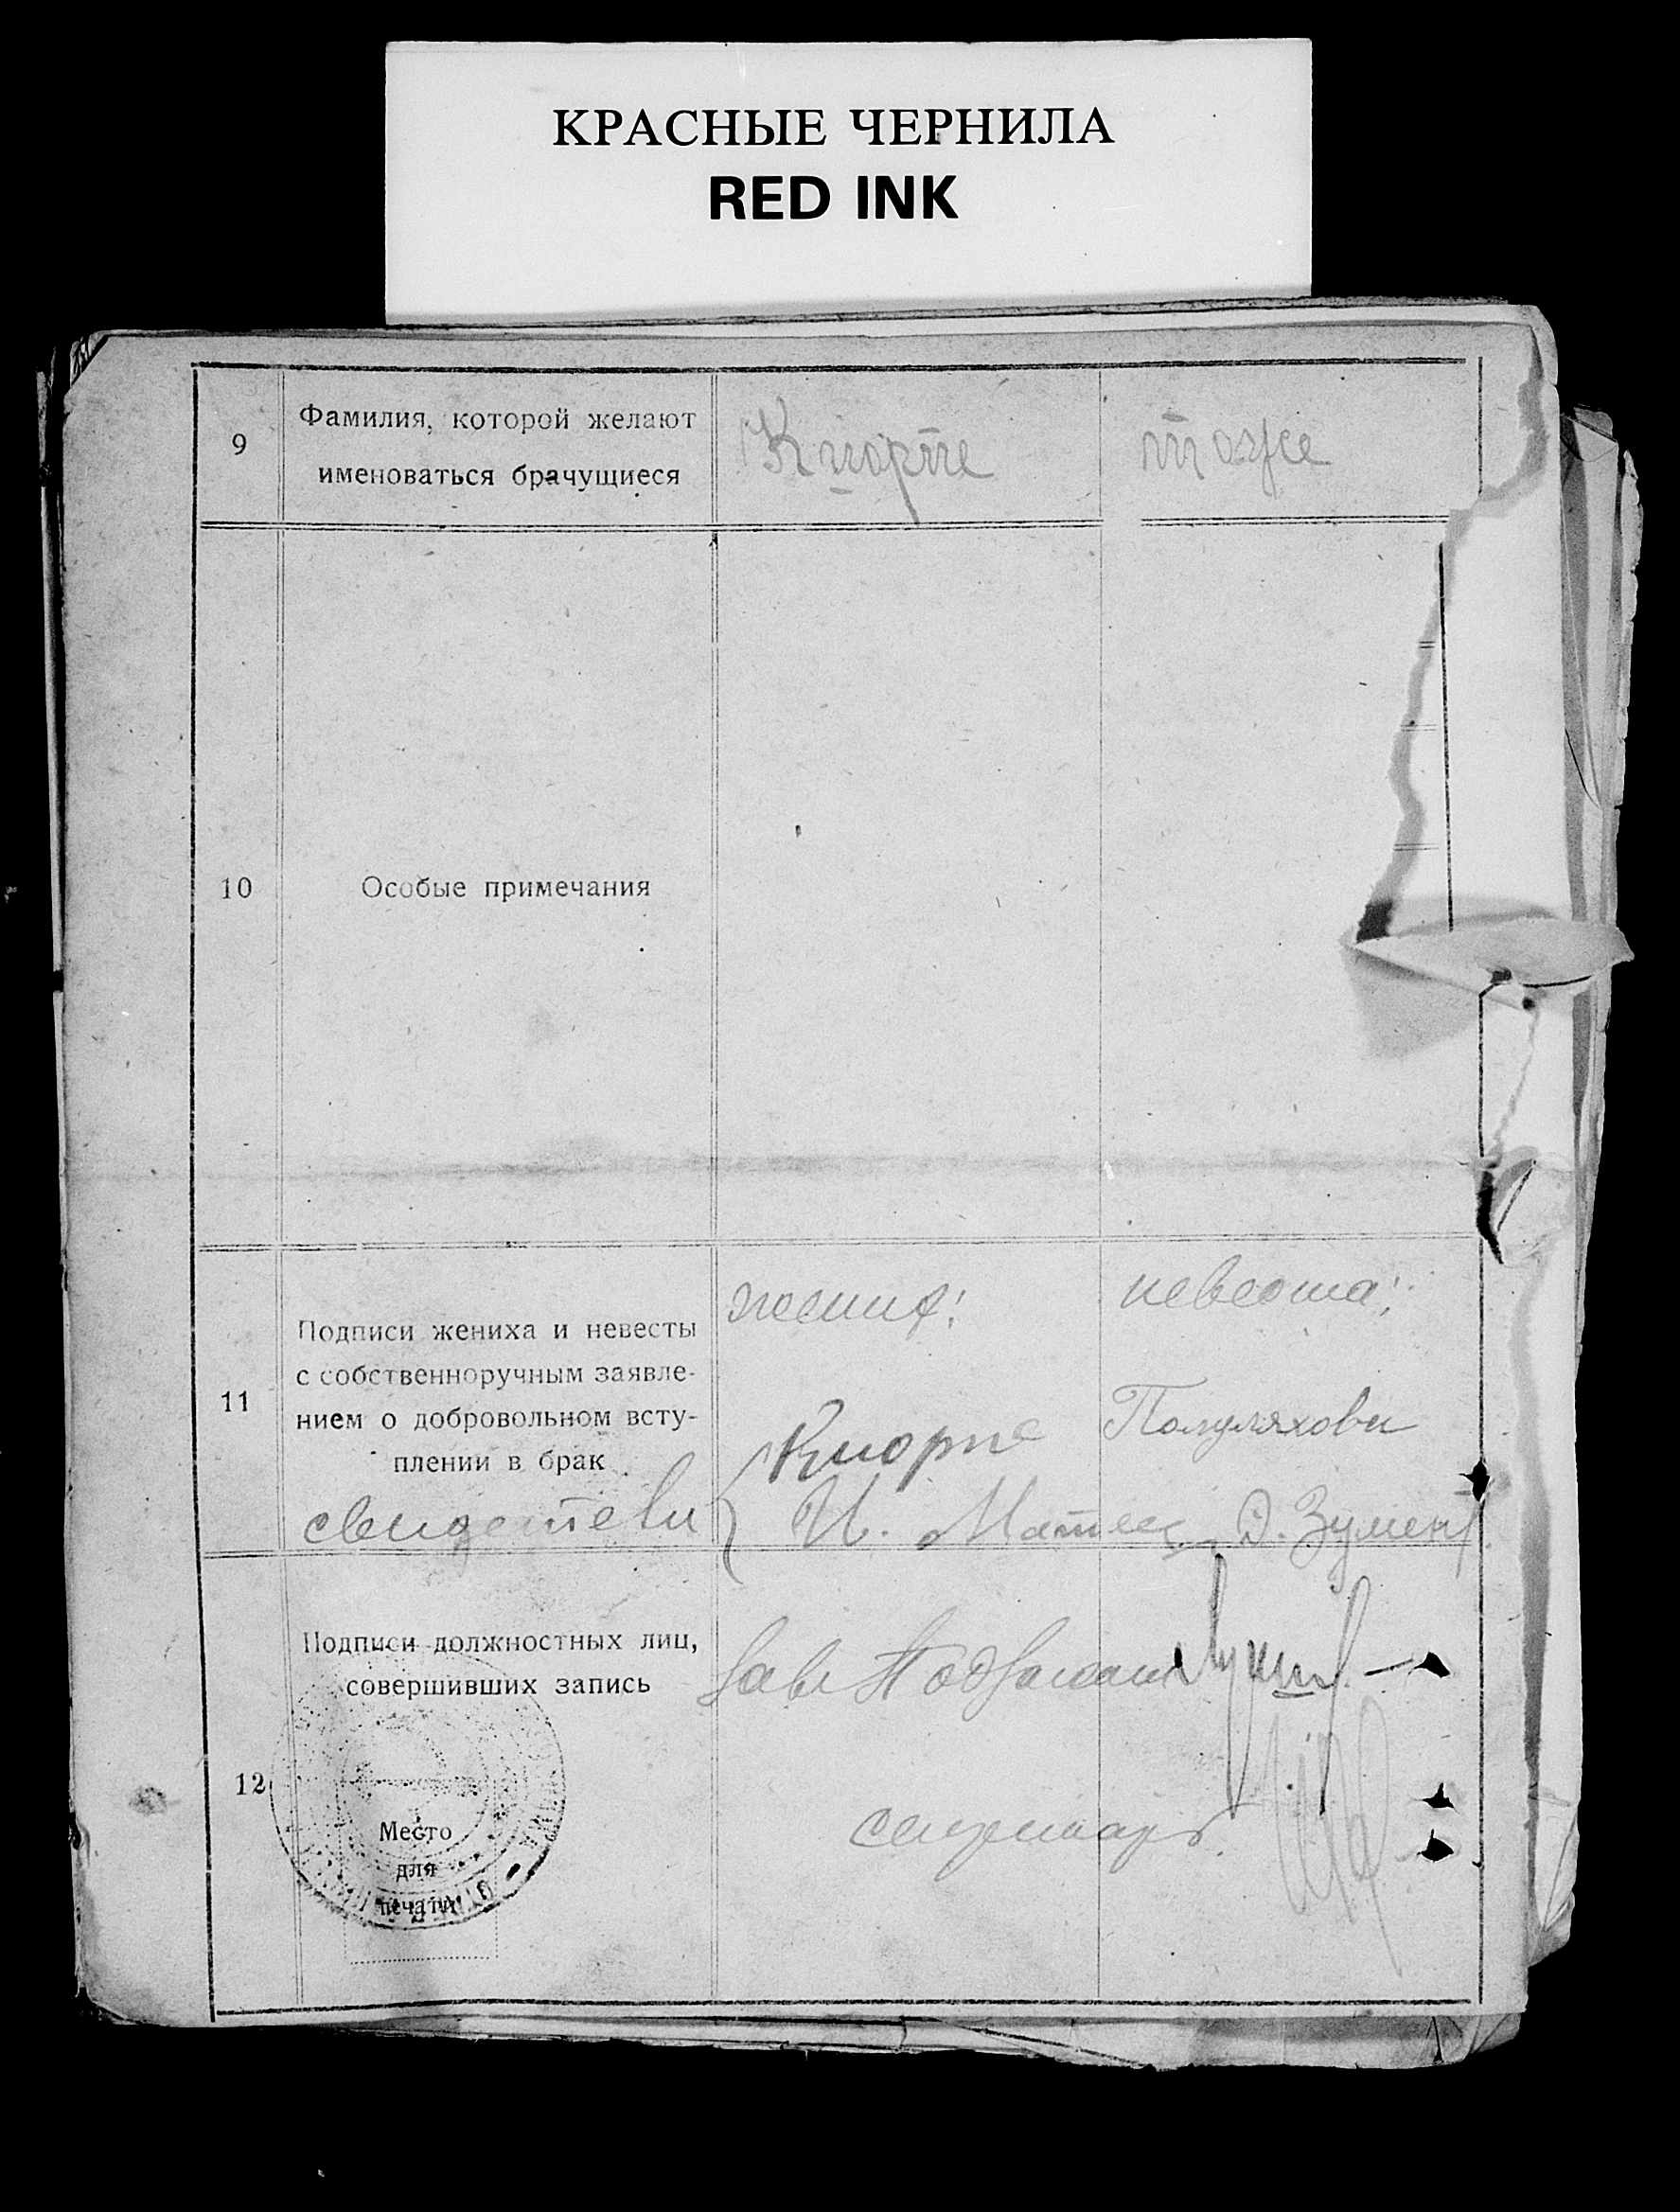 КРАСНЫЕ ЧЕРНИЛА
RED INK
9
Фамилия, которой желают
именоваться брачущиеся
Кнорте
тоже
10
Особые примечания
11
Подписи жениха и невесты
с собственноручным заявле-
нием о добровольном всту-
плении в брак
жених:
невеста:
Полуляхова
свидетели
И.
Д.
12
Подписи должностных лиц,
совершивших запись
Зав. Подзагсом
секретарь
Место
для
печати